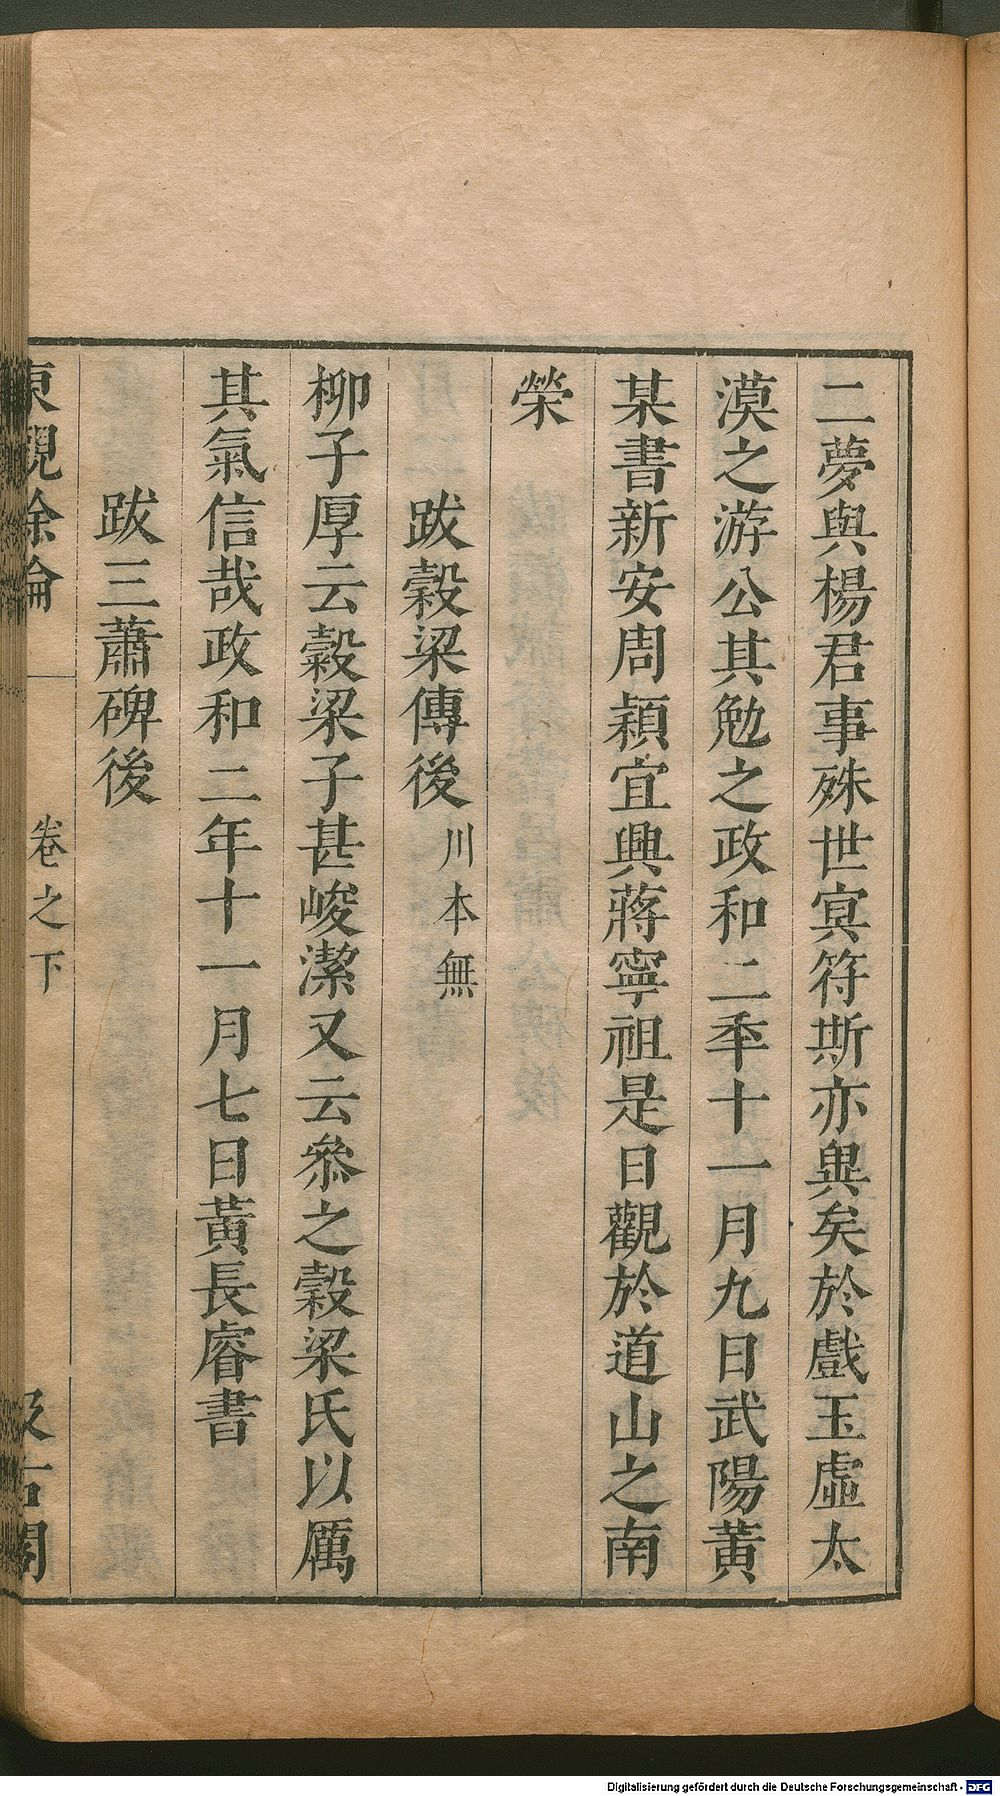 二夢與楊君事殊世㝠符斯亦異矣於戲玉虛太
漠之游公其勉之政和二秊十一月九日武陽黃
某書新安周穎宜興蔣寧祖是日觀於道山之南
榮
跋穀梁傳後川本無
柳子厚云穀梁子甚峻潔又云叅之穀梁氏以厲
其氣信哉政和二年十一月七日黃長睿書
跋三蕭碑後
東觀餘論 卷之下 汲古閣
Digitalisierung gefördert durch die Deutsche Forschungsgemeinschaft - DFG